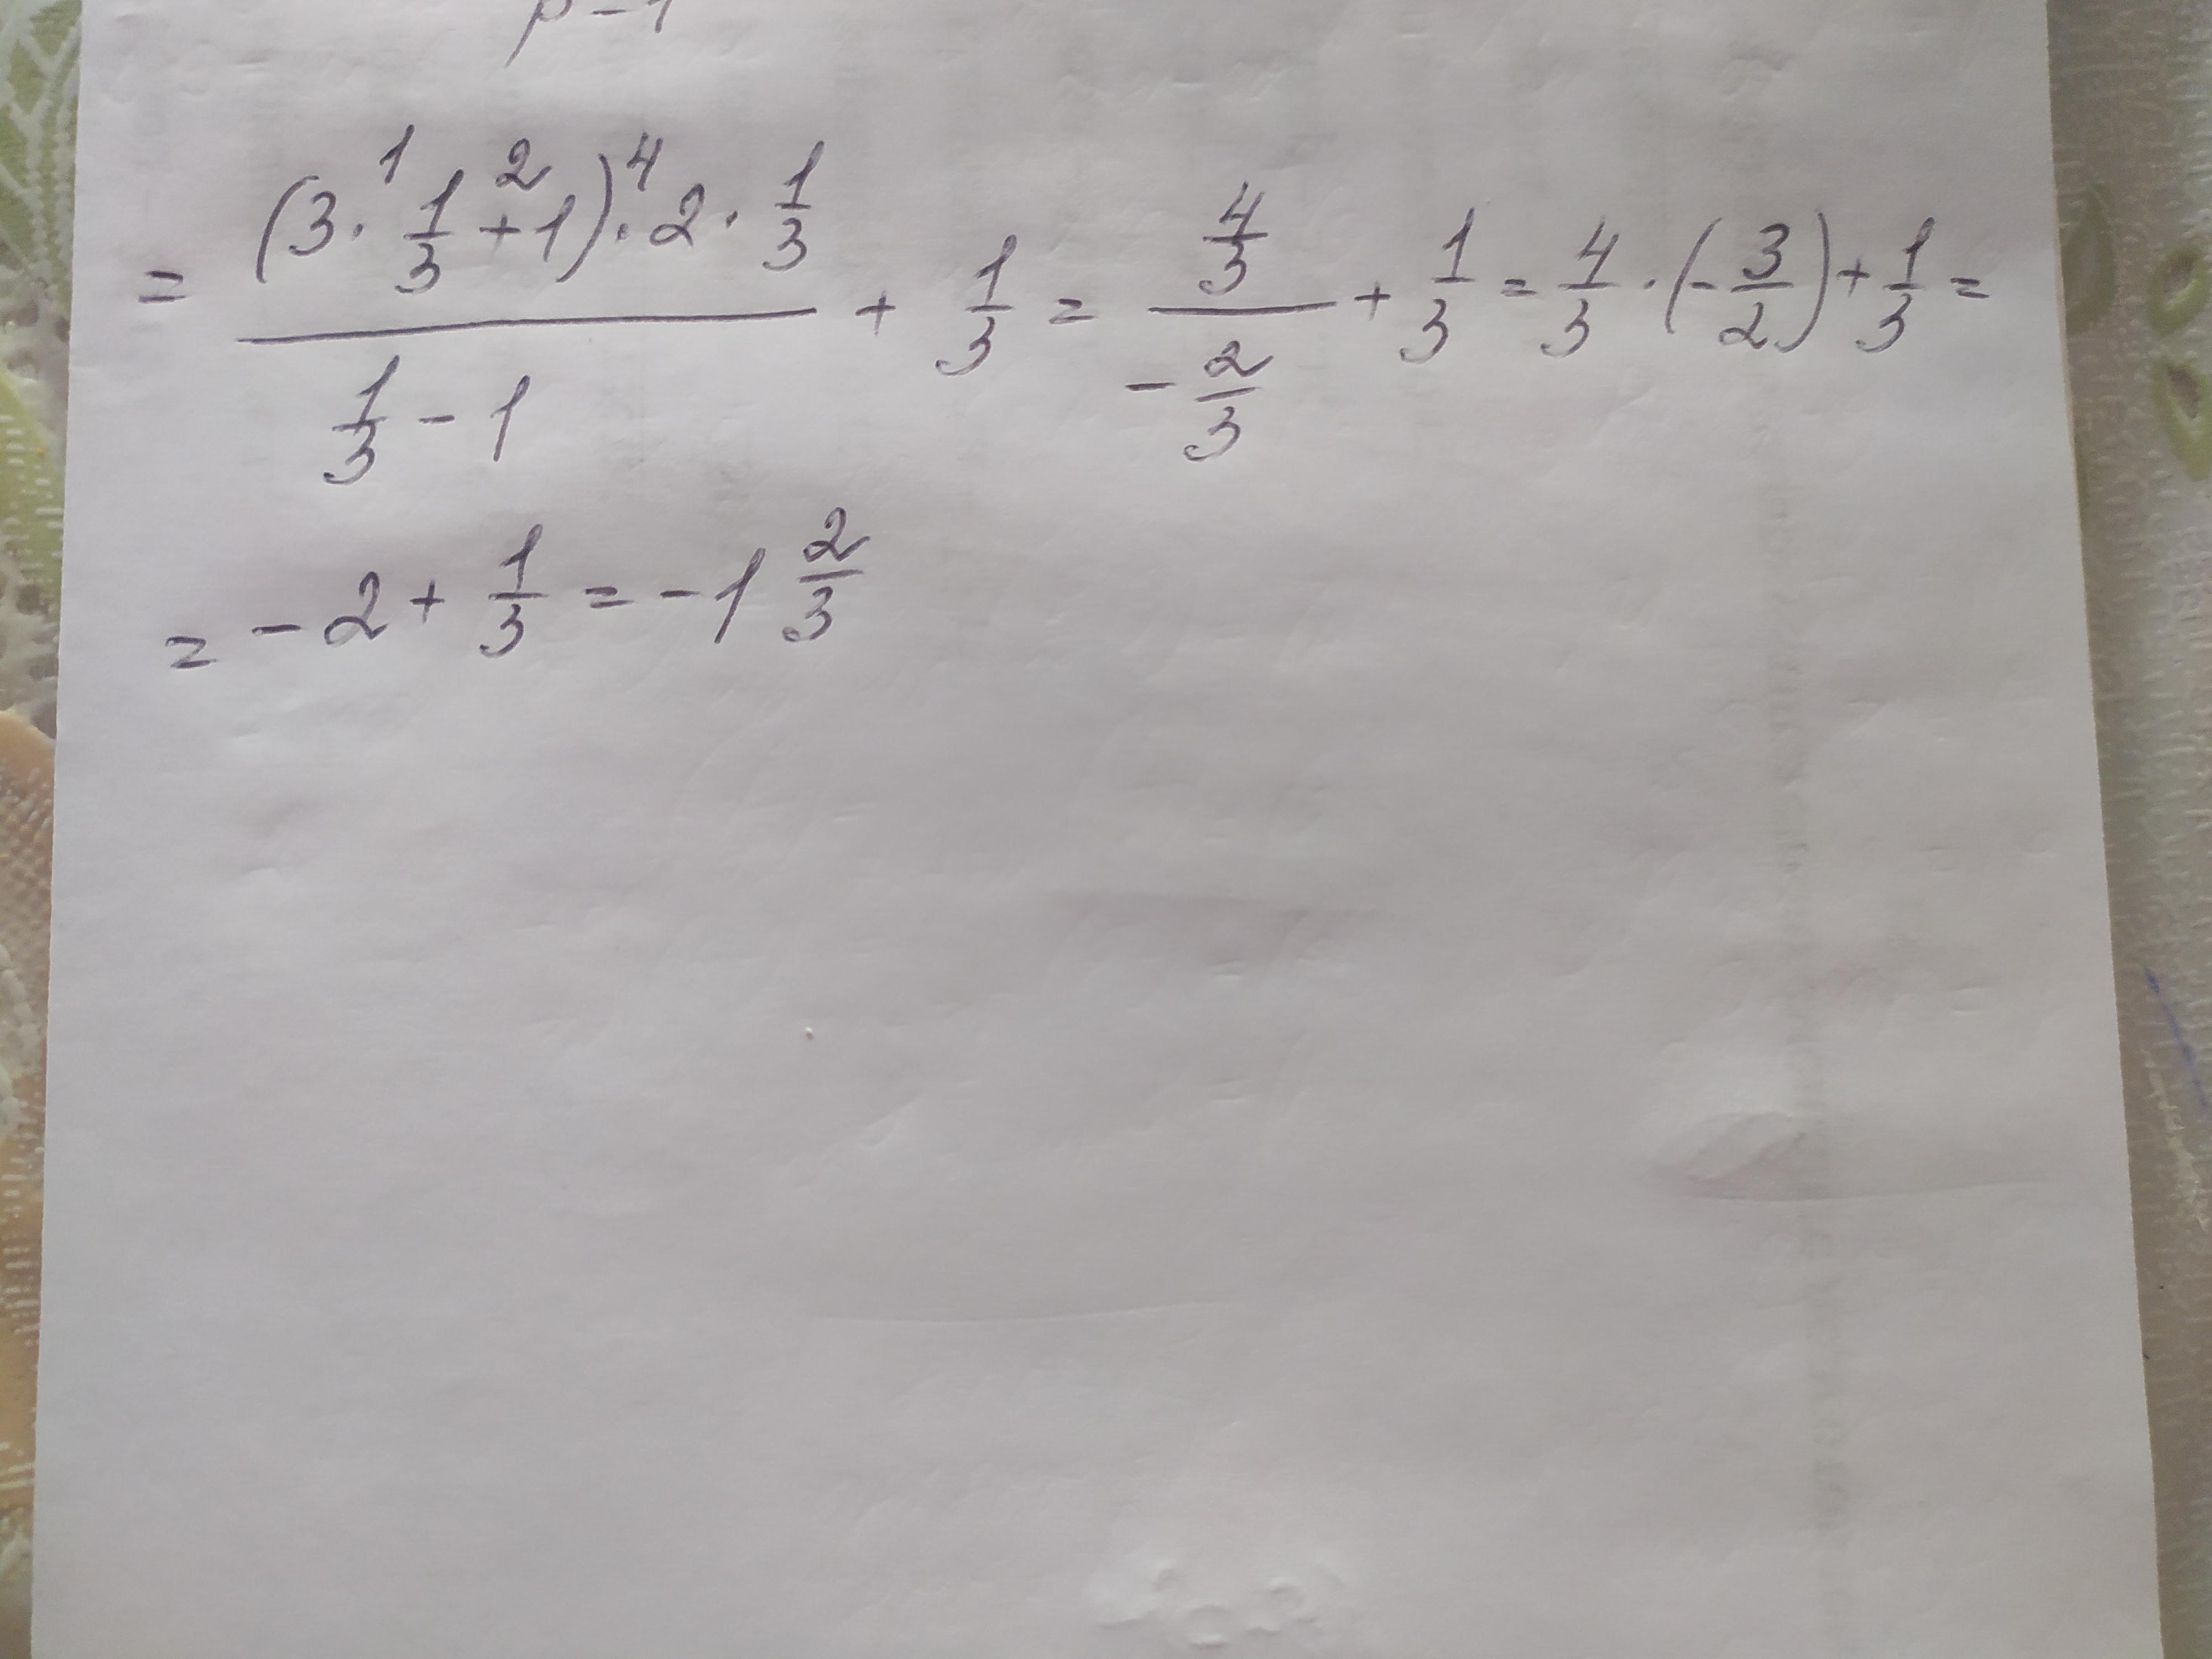 p - 1
= ((3 · 1/3 + 1) · 2 · 1/3) / (1/3 - 1) + 1/3 = (4/3) / (-2/3) + 1/3 = 4/3 · (-3/2) + 1/3 =
1 2 4
= -2 + 1/3 = -1 2/3